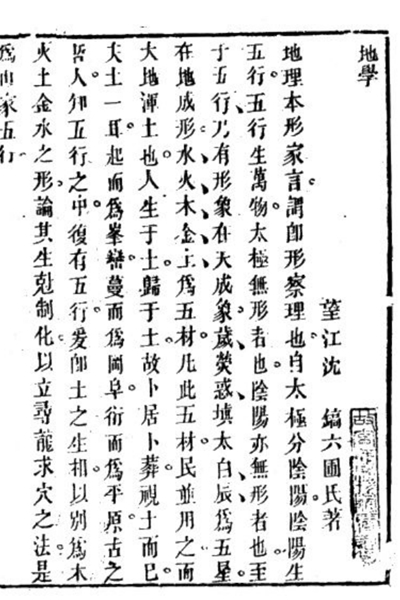 地學
望江沈　鎬六圃氏著
地理本形家言謂卽形察理也自太極分陰陽陰陽生
五行五行生萬物太極無形者也陰陽亦無形者也至
于五行乃有形象在天成象歲熒惑填太白辰爲五星
在地成形水火木金土爲五材凡此五材民並用之而
大地渾土也人生于土歸于土故卜居卜葬視土而已
夫土一耳起而爲峯巒蔓而爲岡阜衍而爲平原古之
哲人知五行之中復有五行爰卽土之生相以別爲木
火土金水之形論其生尅制化以立尋龍求穴之法是
爲山家五行